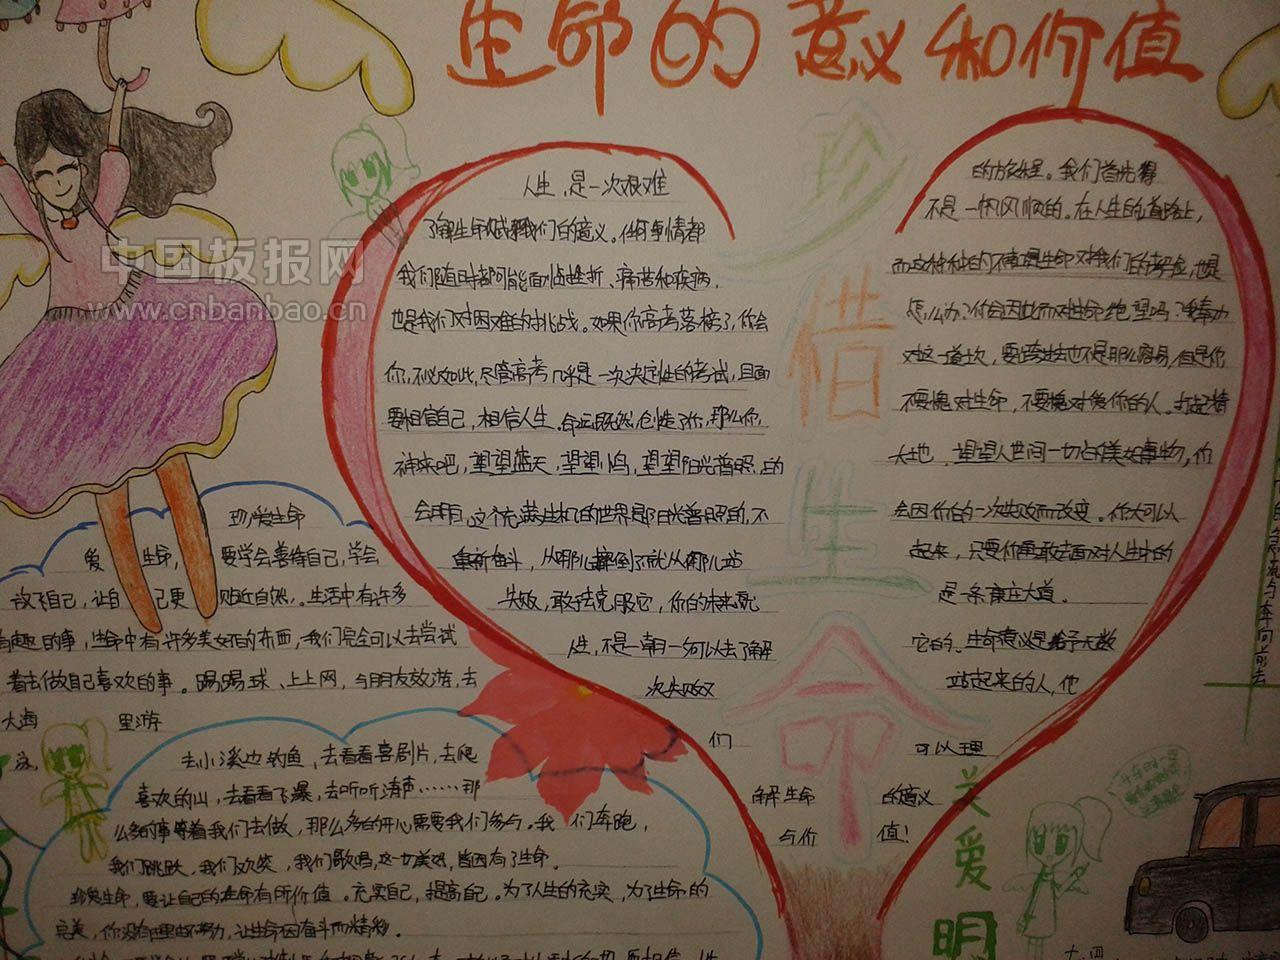 生命的意义和价值
珍惜生命
人生，是一次艰难
的旅程。我们首先得
了解生命赋予我们的意义。任何事情都
不是一帆风顺的。在人生的道路上，
我们随时都可能面临挫折、痛苦和疾病，
而这种种的不幸是生命对我们的考验，也是
也是我们对困难的挑战。如果你高考落榜了，你会
怎么办？你会因此而对生命绝望吗？我奉劝
你，不必如此，尽管高考几乎是一次决定性的考试，且面
对这一道坎，要跨过去也不是那么容易，但是你
要相信自己，相信人生。命运既然创造了你，那么你，
不要愧对生命，不要愧对爱你的人。打起精
神来吧，望望蓝天，望望小鸟，望望阳光普照的
大地，望望人世间一切的美好事物，你
会明白，这个充满生机的世界是阳光普照的，不
会因你的一次失败而改变。你大可以
重新奋斗，从哪儿摔倒了就从哪儿站
起来，只要你勇敢去面对人生中的
失败，敢于克服它，你的未来就
是一条康庄大道。
人生，不是一朝一夕可以去了解
它的。生命意义是给予无数
次失败又
站起来的人，他
们
可以理
解生命
的意义
与价
值！
珍爱生命
爱 生命，要学会善待自己，学会
放下自己，让自己更贴近自然。生活中有许多
有趣的事，生命中有许多美好的东西，我们完全可以去尝试
着去做自己喜欢的事。踢踢球、上上网，与朋友敖游，去
大海 里游
泳，
去小溪边钓鱼，去看看喜剧片，去爬
喜欢的山，去看看飞瀑，去听听涛声……那
么多的事等着我们去做，那么多的开心需要我们参与。我们奔跑，
我们跳跃，我们欢笑，我们歌唱，这一切美好，皆因有了生命。
珍爱生命，要让自己的生命有所价值。充实自己，提高自己。为了人生的充实，为了生命的
完美，你没有理由不努力，让生命因奋斗而精彩。
关爱
明
中国板报网
www.cnbanbao.cn